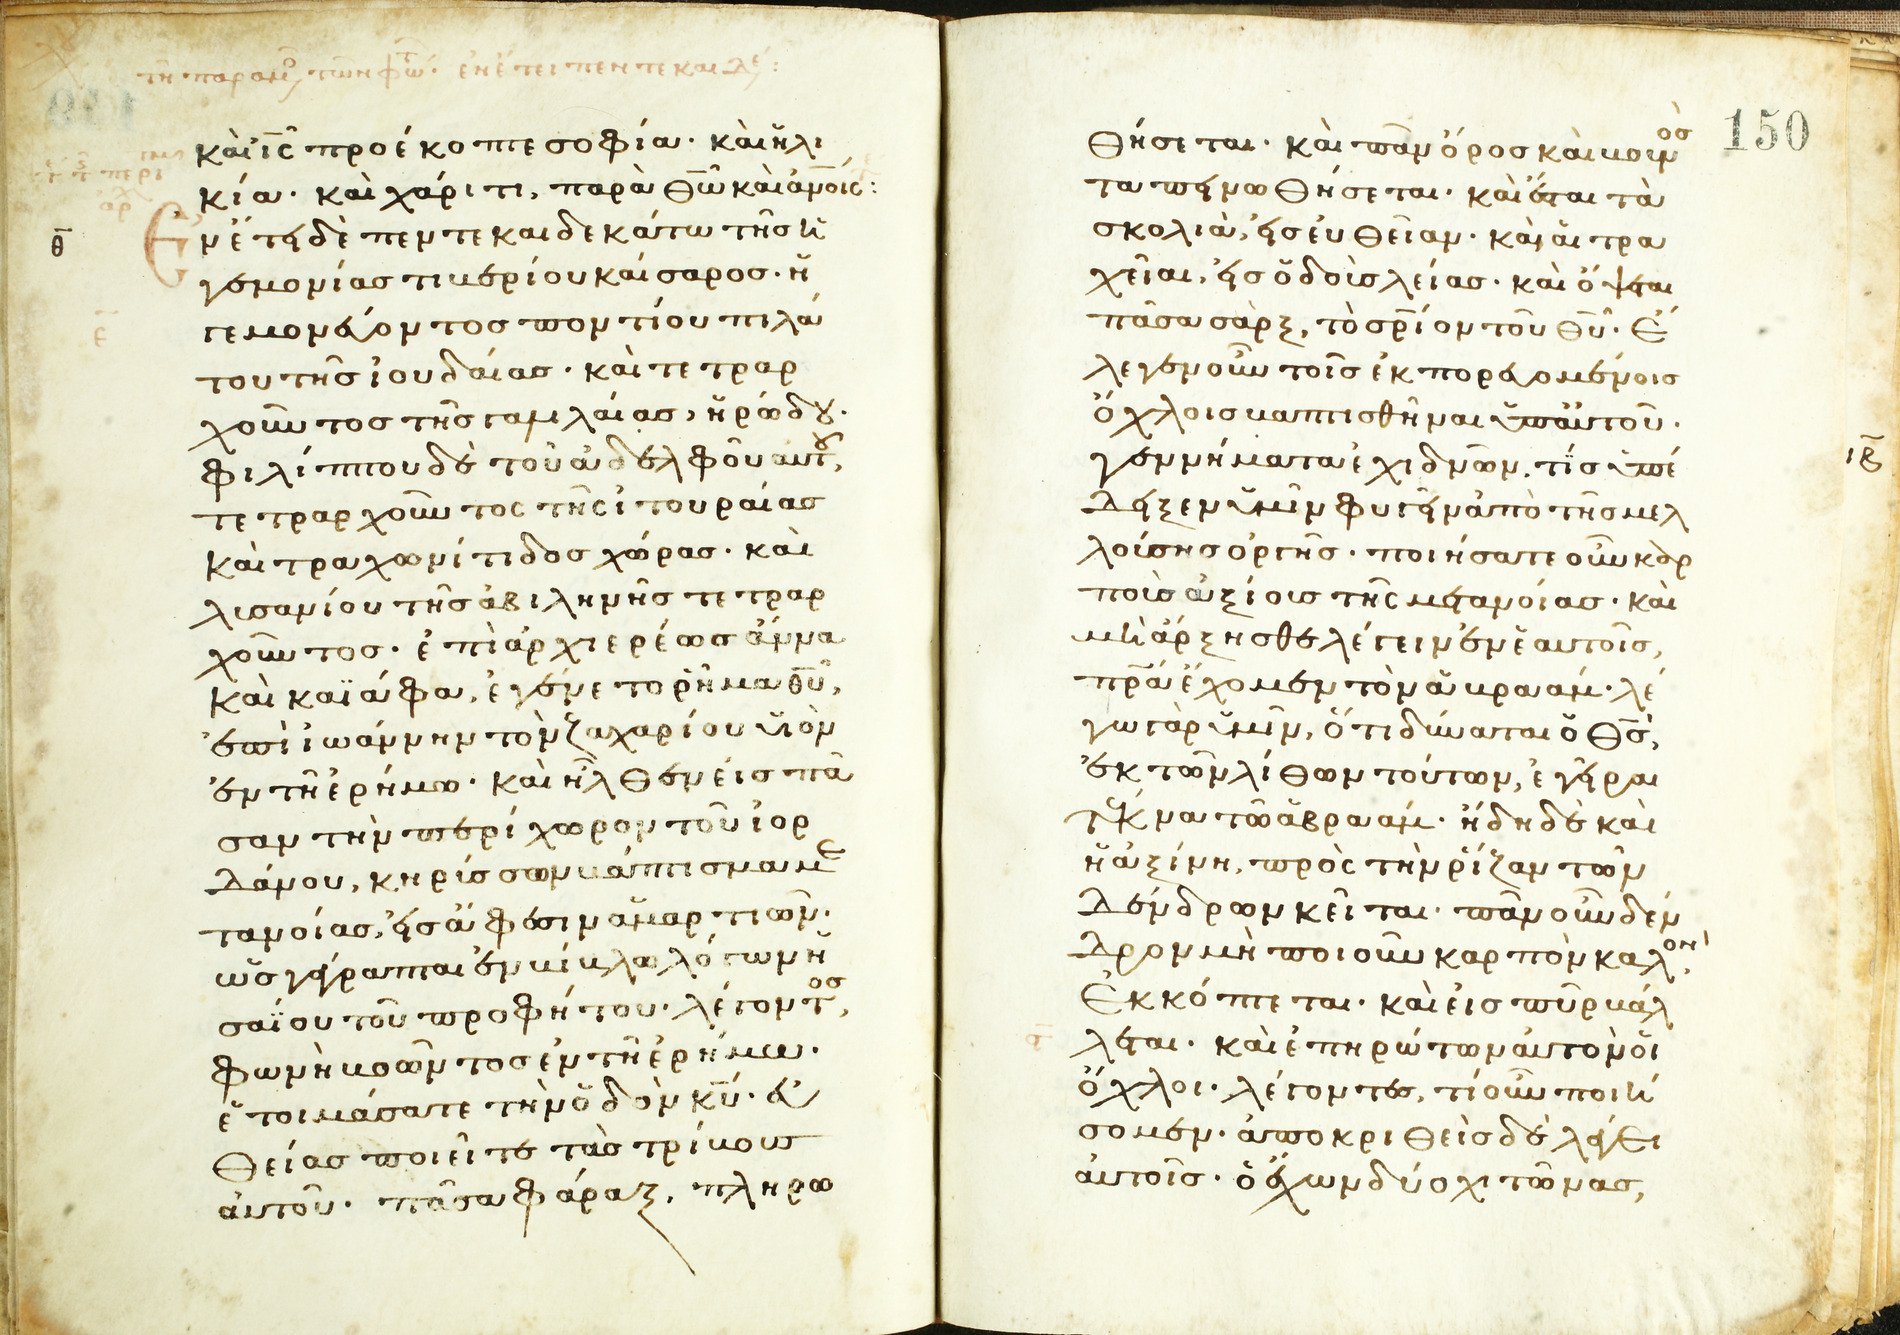 τῆ παραμ τῶν φώτ· ἐν ἔτει πεντε και δε:
καὶ ῑς̄ προέκοπτε σοφία· καὶ ἡλι
κία· καὶ χάριτι, παρὰ θ̄ω̄ καὶ ἀν̄οις:
θ̄
Ἐν ἔτει δὲ πεντεκαιδεκάτω τῆς ἡ
γεμονίας τιβερίου καίσαρος· ἡ
γεμονεύοντος ποντίου πιλά
του τῆς ἰουδαίας· καὶ τετραρ
χοῦντος τῆς γαλιλαίας, ἡρώδου·
φιλίππου δὲ τοῦ ἀδελφοῦ αὐτοῦ,
τετραρχοῦντος τῆς ἰτουραίας
καὶ τραχωνίτιδος χώρας· καὶ
λισανίου τῆς ἀβιληνῆς τετραρ
χοῦντος· ἐπὶ ἀρχιερέως ἄννα
καὶ καϊάφα, ἐγένετο ρῆμα θ̄ῡ,
ἐπὶ ἰωάννην τὸν ζαχαρίου υἱὸν
ἐν τῆ ἐρήμω· καὶ ἦλθεν εἰς πᾶ
σαν τὴν περίχωρον τοῦ ἰορ
δάνου, κηρύσσων βάπτισμα με
τανοίας, εἰς ἄφεσιν ἁμαρτιῶν·
ὡς γέγραπται ἐν βίβλω λόγων ἡ
σαΐου τοῦ προφήτου· λέγοντος,
φωνὴ βοῶντος ἐν τῆ ἐρήμω·
ἑτοιμάσατε τὴν ὁδὸν κ̄ῡ· εὐ
θείας ποιεῖτε τὰς τρίβους
αὐτοῦ· πᾶσα φάραξ, πληρω
150
θήσεται· καὶ πᾶν ὄρος καὶ βουνὸς
ταπεινωθήσεται· καὶ ἔσται τὰ
σκολιὰ, εἰς εὐθεῖαν· καὶ αἱ τρα
χεῖαι, εἰς ὁδοὺς λείας· καὶ ὄψεται
πᾶσα σὰρξ, τὸ σρ̄ίον τοῦ θ̄ῡ. Ἔ
λεγεν οὖν τοῖς ἐκπορευομένοις
ὄχλοις βαπτισθῆναι ὑπ' αὐτοῦ·
γεννήματα ἐχιδνῶν, τίς ὑπέ
ιβ̄
δειξεν ὑμῖν φυγεῖν ἀπὸ τῆς μελ
λούσης ὀργῆς· ποιήσατε οὖν καρ
ποὺς ἀξίους τῆς μετανοίας· καὶ
μὴ ἄρξησθε λέγειν ἐν ἑαυτοῖς,
πρ̄α ἔχομεν τὸν ἀβραάμ· λέ
γω γὰρ ὑμῖν, ὅτι δύναται ὁ θ̄ς̄,
ἐκ τῶν λίθων τούτων, ἐγεῖραι
τέκνα τῶ ἀβραάμ· ἤδη δὲ καὶ
ἡ ἀξίνη, πρὸς τὴν ῥίζαν τῶν
δένδρων κεῖται· πᾶν οὖν δέν
δρον μὴ ποιοῦν καρπὸν καλὸν,
Ἐκκόπτεται· καὶ εἰς πῦρ βάλ
λεται· καὶ ἐπηρώτων αὐτὸν οἱ
ὄχλοι· λέγοντες, τί οὖν ποιή
σομεν· ἀποκριθεὶς δὲ λέγει
αὐτοῖς· ὁ ἔχων δύο χιτῶνας,